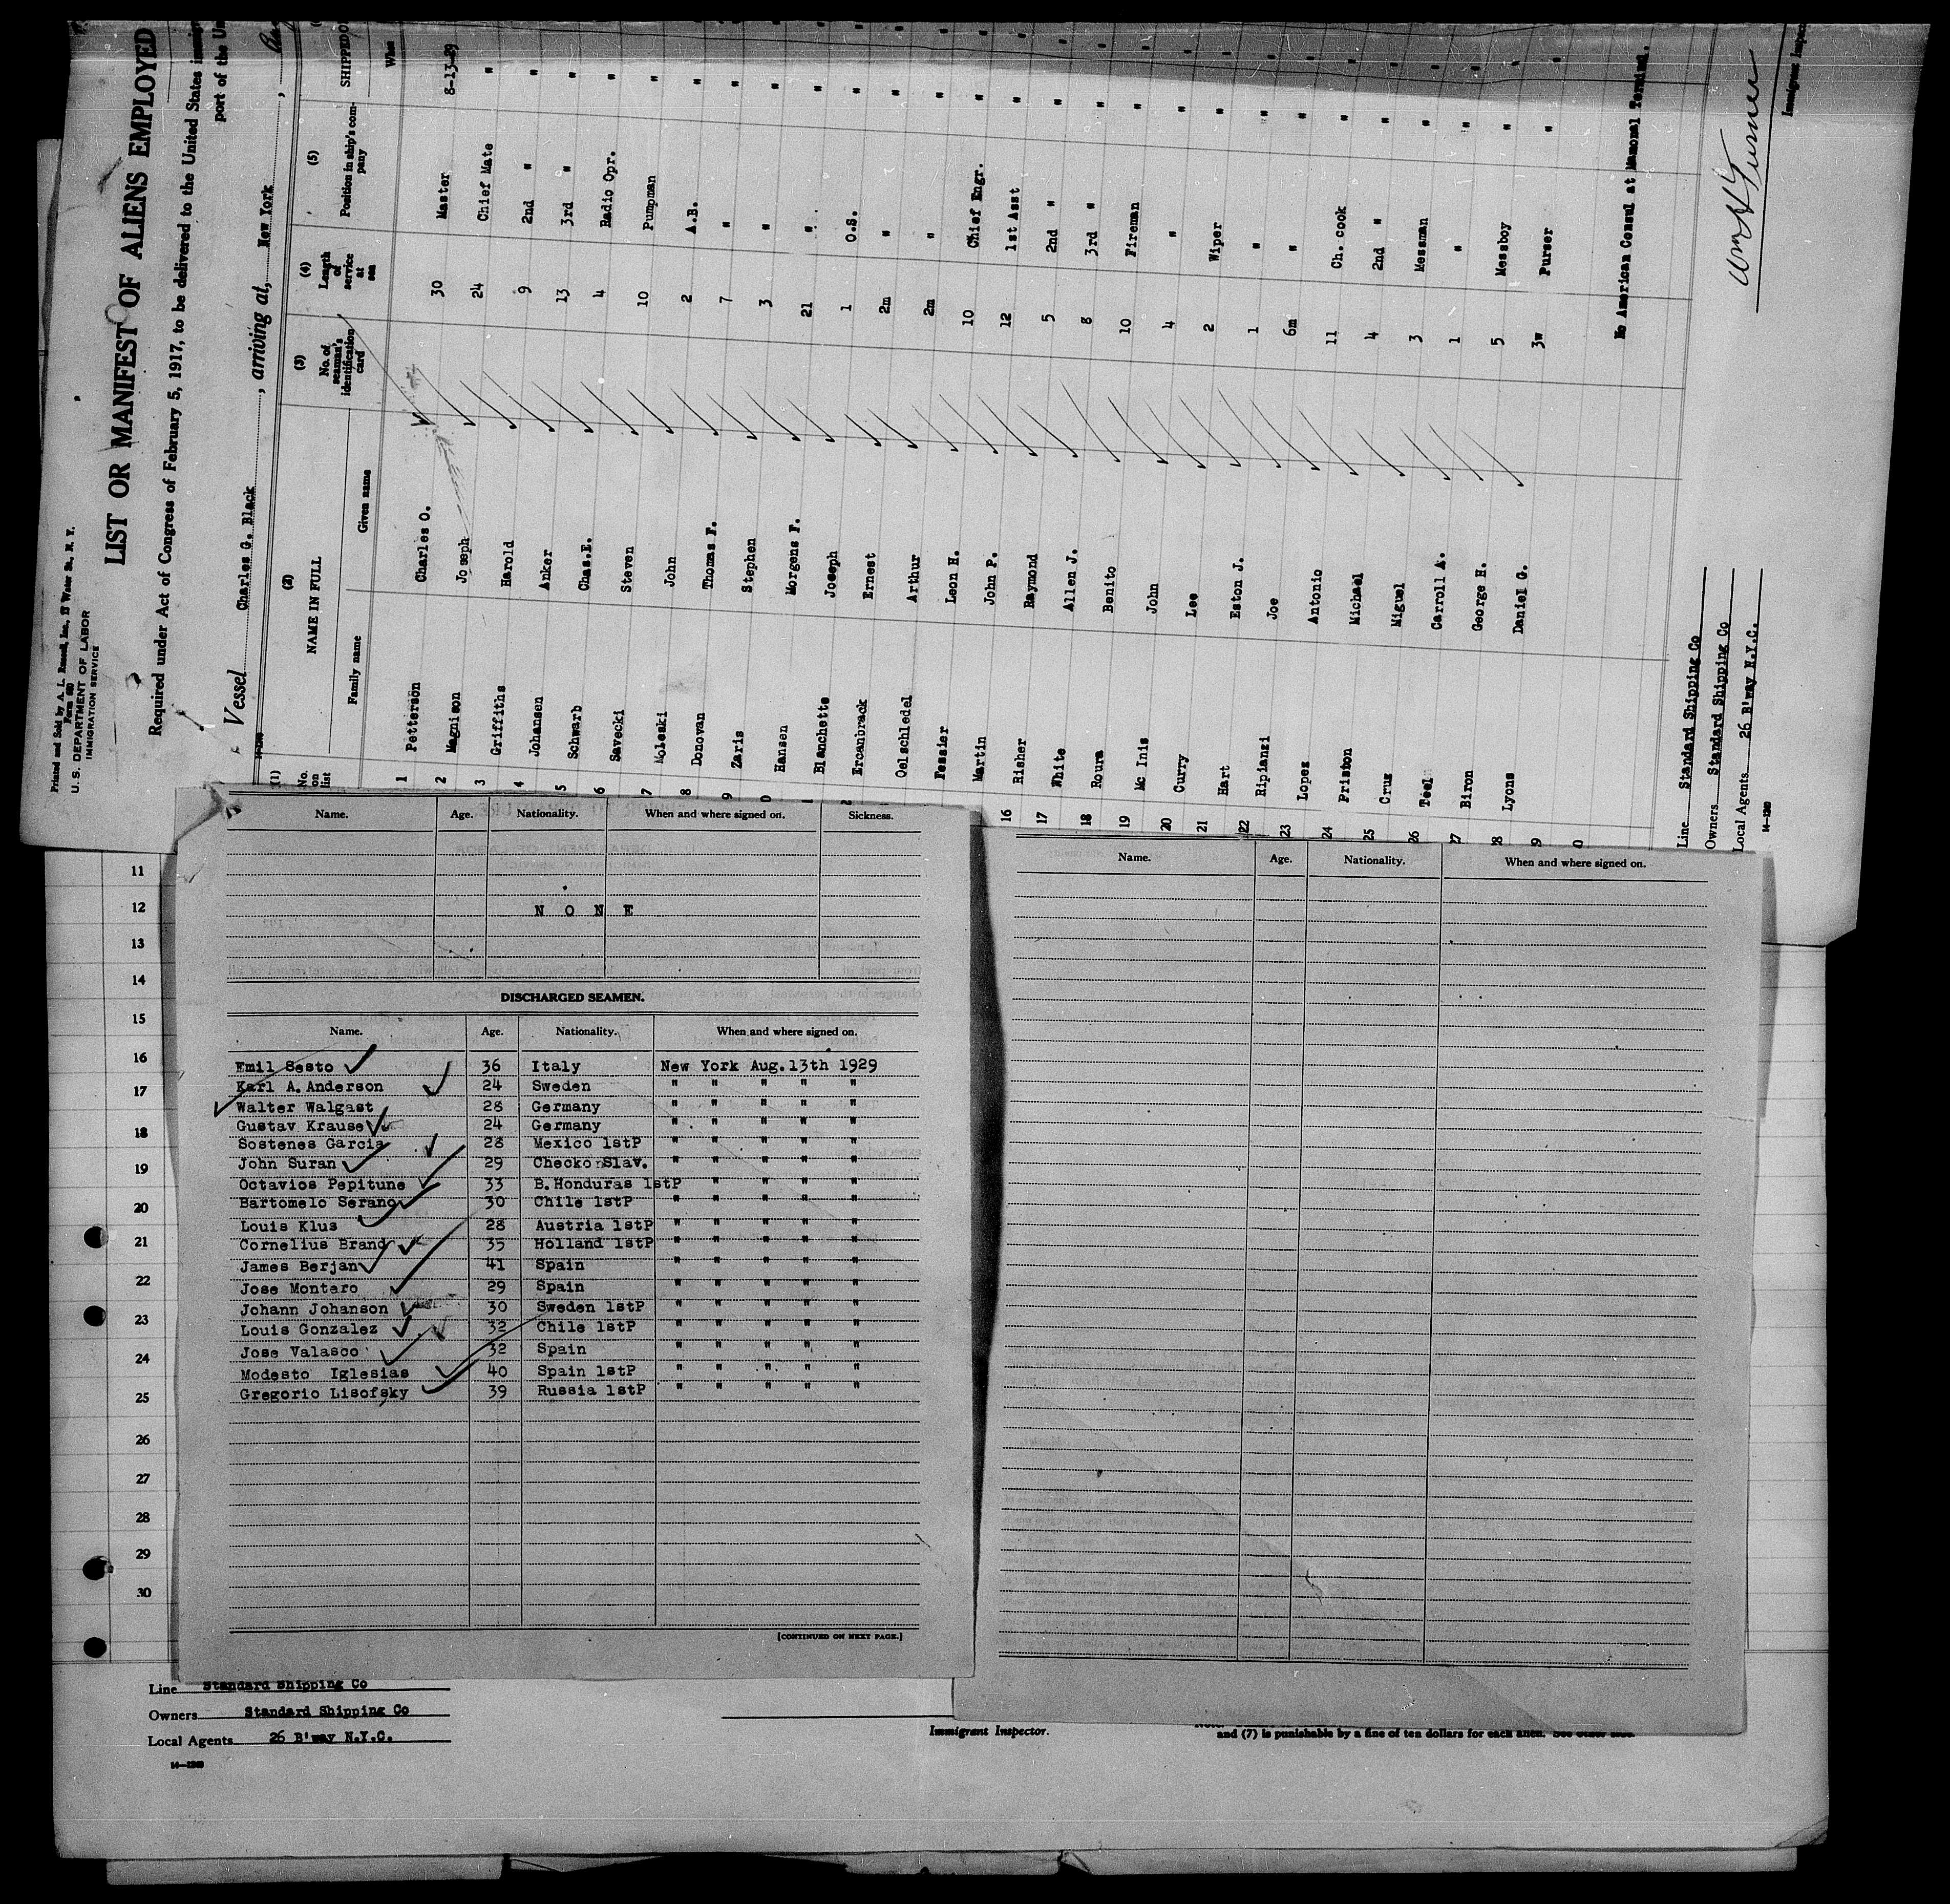 Printed and Sold by A. L. Russell, Inc., 12 Water St., N. Y.
Form 680
U. S. DEPARTMENT OF LABOR
IMMIGRATION SERVICE
LIST OR MANIFEST OF ALIENS EMPLOYED
Required under Act of Congress of February 5, 1917, to be delivered to the United States
port of the
Vessel Charles G. Black, arriving at, New York,
(1) (2) (3) (4) (5)
No. on list NAME IN FULL No. of seaman's identification card Length of service at sea Position in ship's company SHIPPED O
Family name Given name When
1 Petterson Charles O. 30 Master 8-13-29
2 Magnison Joseph 24 Chief Mate "
3 Griffiths Harold 9 2nd " "
4 Johansen Anker 13 3rd " "
5 Schwarb Chas.E. 4 Radio Opr. "
6 Savecki Steven 10 Pumpman "
7 Moleski John 2 A.B. "
8 Donovan Thomas F. 7 " "
9 Zaris Stephen 3 " "
0 Hansen Morgens F. 21 " "
Blanchette Joseph 1 O.S. "
Ercanbrack Ernest 2m " "
Oelschledel Arthur 2m " "
Fessier Leon H. 10 Chief Engr. "
Martin John P. 12 1st Asst "
16 Risher Raymond 5 2nd " "
17 White Allen J. 8 3rd " "
18 Roura Benito 10 Fireman "
19 Mc Inis John 4 " "
20 Curry Lee 2 Wiper "
21 Hart Eston J. 1 " "
22 Ripianzi Joe 6m " "
23 Lopez Antonio 11 Ch. cook "
24 Priston Michael 4 2nd " "
25 Cruz Miguel 3 Messman "
26 Teel Carroll A. 1 " "
7 Biron George H. 5 Messboy "
8 Lyons Daniel G. 3w Purser "
9
0
No American Consul at Mamonal Terminal.
Line Standard Shipping Co
Owners Standard Shipping Co
Local Agents 26 B'way N.Y.C.
14-1280
Immigrant Inspec
Name. Age. Nationality. When and where signed on. Sickness.
N O N E
DISCHARGED SEAMEN.
Name. Age. Nationality. When and where signed on.
Emil Sesto 36 Italy New York Aug.13th 1929
Karl A.Anderson 24 Sweden " " " " "
Walter Walgast 28 Germany " " " " "
Gustav Krause 24 Germany " " " " "
Sostenes Garcia 28 Mexico 1stP " " " " "
John Suran 29 Checko Slav. " " " " "
Octavios Pepitune 33 B.Honduras 1stP " " " "
Bartomelo Serano 30 Chile 1stP " " " " "
Louis Klus 28 Austria 1stP " " " " "
Cornelius Brand 35 Holland 1stP " " " " "
James Berjan 41 Spain " " " " "
Jose Montero 29 Spain " " " " "
Johann Johanson 30 Sweden 1stP " " " " "
Louis Gonzalez 32 Chile 1stP " " " " "
Jose Valasco 32 Spain " " " " "
Modesto Iglesias 40 Spain 1stP " " " " "
Gregorio Lisofsky 39 Russia 1stP " " " " "
[CONTINUED ON NEXT PAGE.]
Name. Age. Nationality. When and where signed on.
11
12
13
14
15
16
17
18
19
20
21
22
23
24
25
26
27
28
29
30
Line Standard Shipping Co
Owners Standard Shipping Co
Local Agents 26 B'way N.Y.C.
14-1280
Immigrant Inspector.
and (7) is punishable by a fine of ten dollars for each alien. See other side.